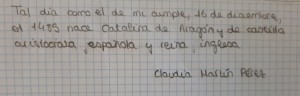 Tal día como el de mi cumple, 16 de diciembre,
el 1485 nace Catalina de Aragón y de Castilla
aristócrata, española y reina, inglesa
Claudia Martín Pérez